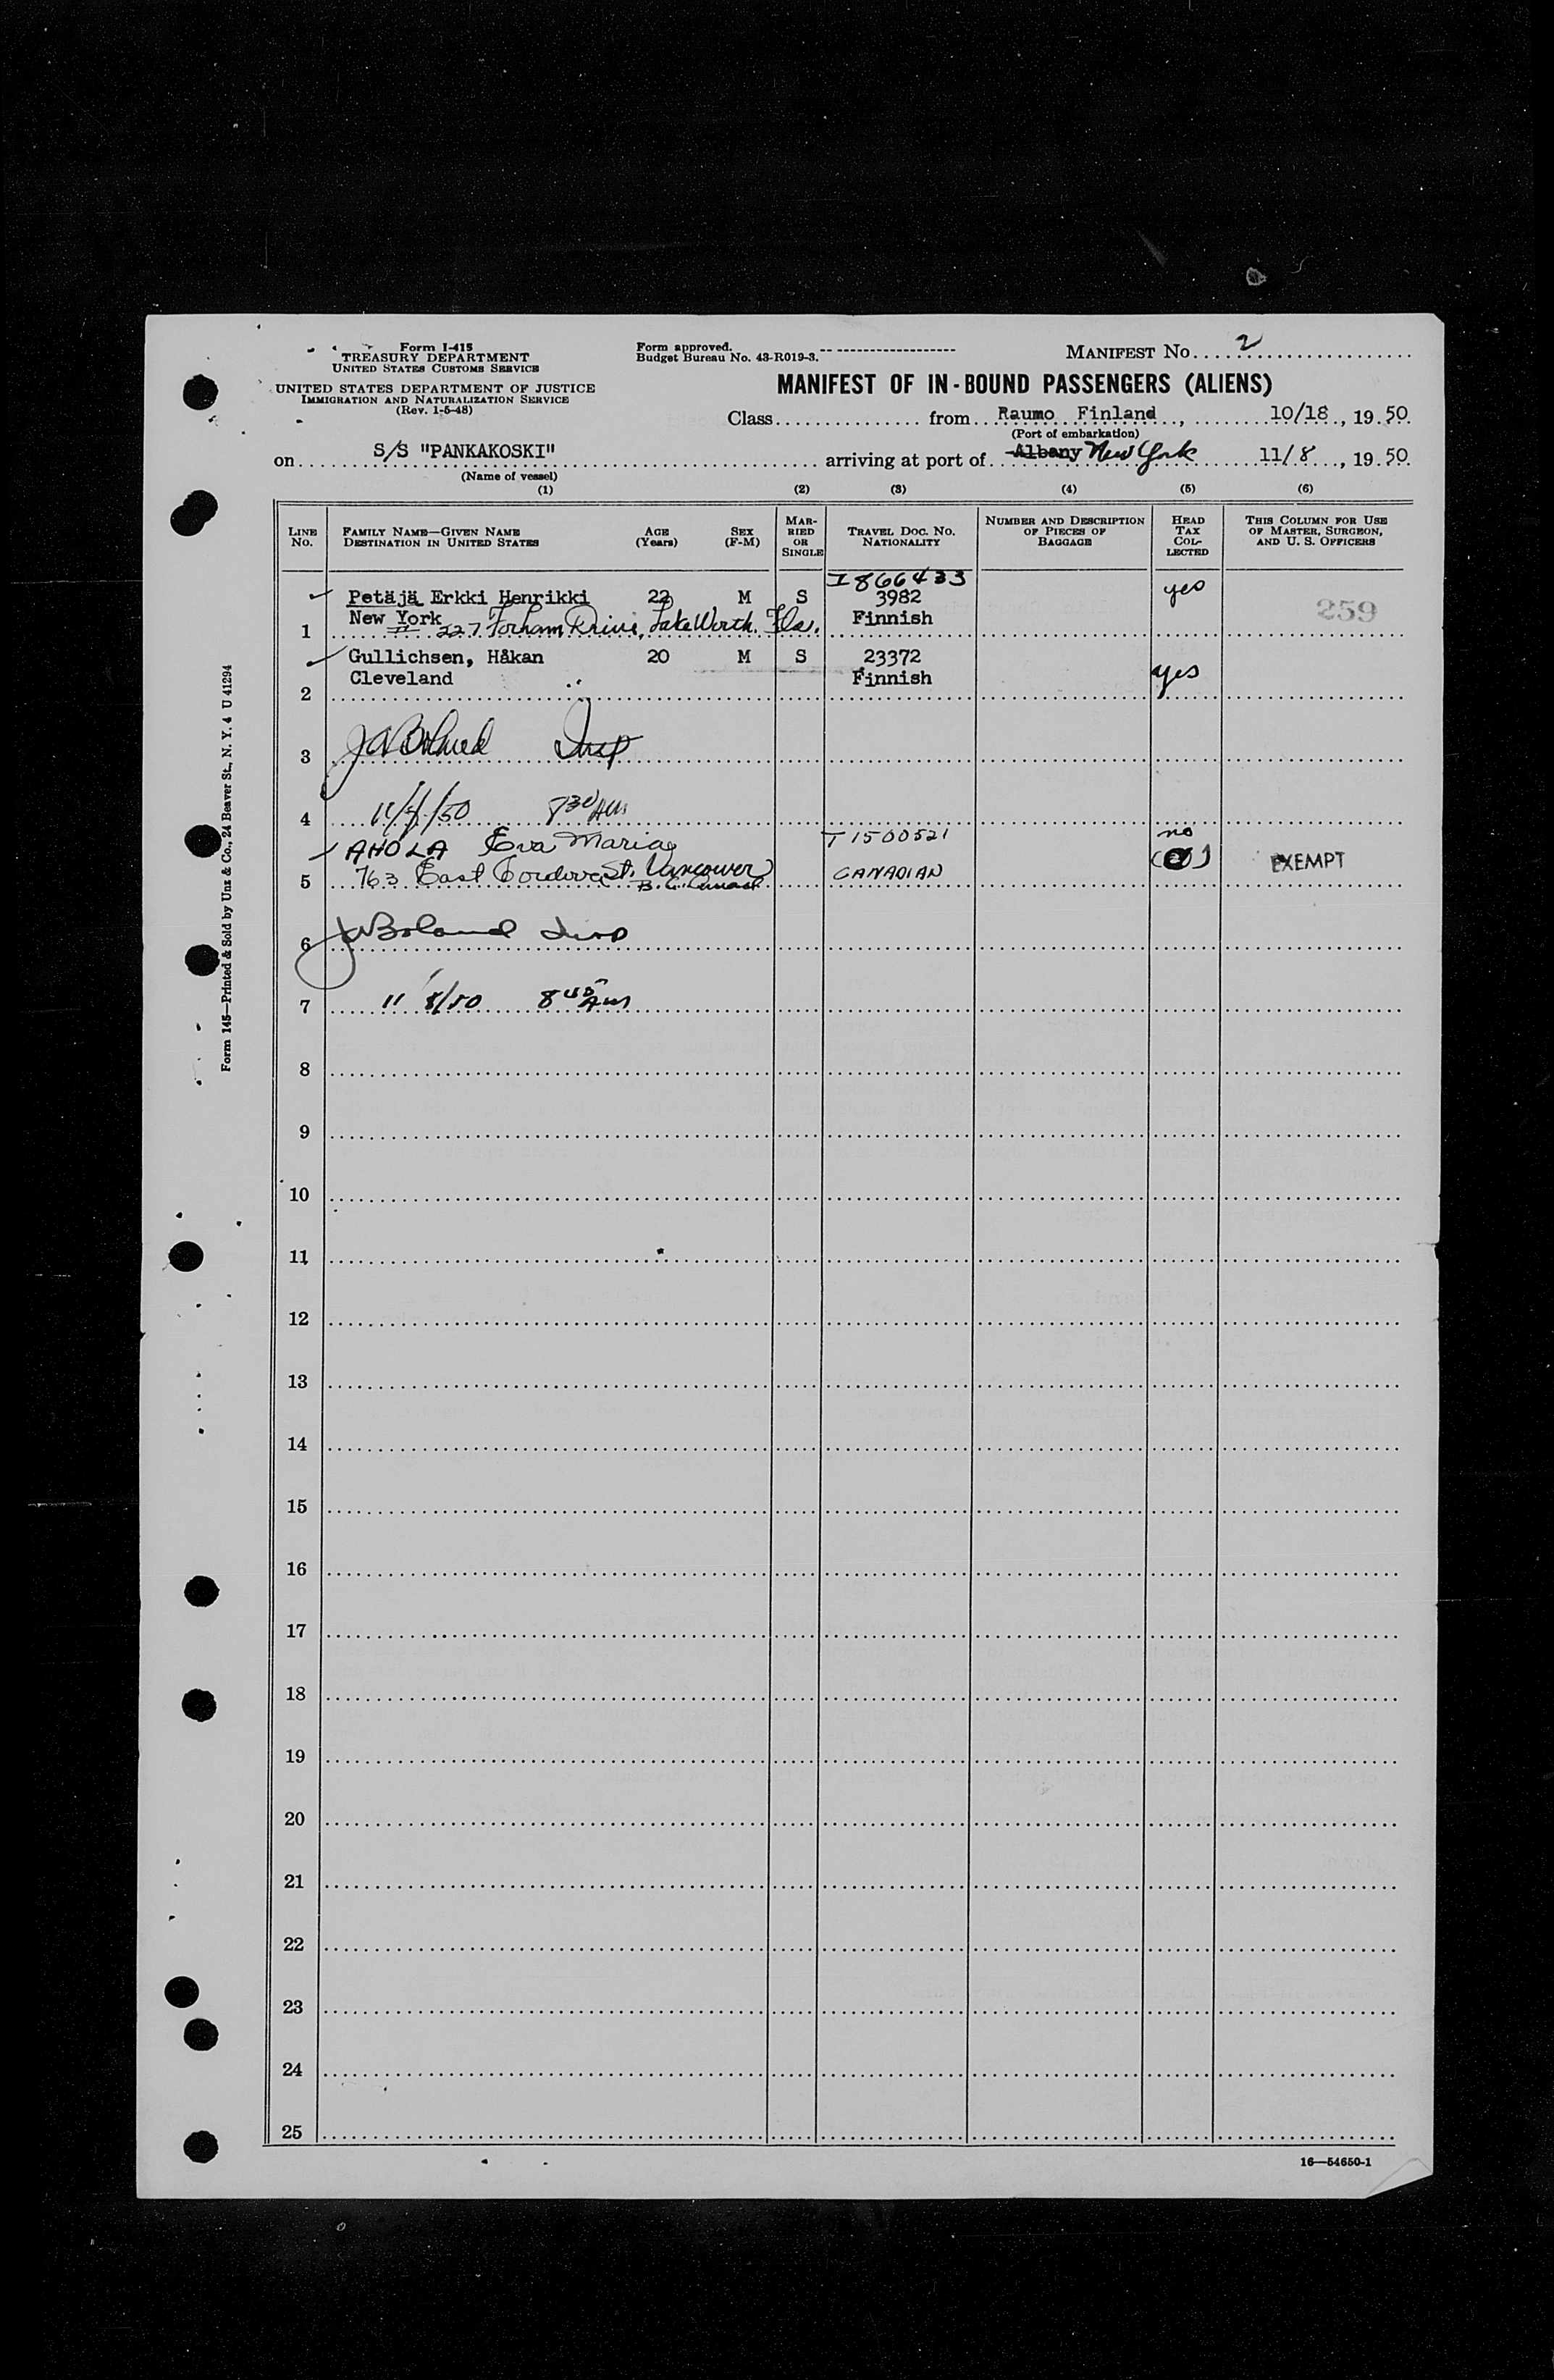 Form I-415
TREASURY DEPARTMENT
UNITED STATES CUSTOMS SERVICE
UNITED STATES DEPARTMENT OF JUSTICE
IMMIGRATION AND NATURALIZATION SERVICE
(Rev. 1-5-48)
Form approved.
Budget Bureau No. 43-R019-3.
MANIFEST NO. 2
MANIFEST OF IN-BOUND PASSENGERS (ALIENS)
Class from Raumo Finland, 10/18, 19 50
(Port of embarkation)
on S/S "PANKAKOSKI" arriving at port of Albany New York 11/8, 19 50
(Name of vessel)
(1) (2) (3) (4) (5) (6)
LINE NO. FAMILY NAME—GIVEN NAME DESTINATION IN UNITED STATES AGE (Years) SEX (F-M) MARRIED OR SINGLE TRAVEL DOC. NO. NATIONALITY NUMBER AND DESCRIPTION OF PIECES OF BAGGAGE HEAD TAX COLLECTED THIS COLUMN FOR USE OF MASTER, SURGEON, AND U. S. OFFICERS
I866433
Petäjä Erkki Henrikki 22 M S 3982 yes
1 New York 227 Forham Drive, Lake Worth. Fla. Finnish 259
Gullichsen, Håkan 20 M S 23372
2 Cleveland Finnish yes
3 Insp
4 11/8/50 8 30 AM
AHOLA Eva Maria T1500521 no
5 763 East Cordova St. Vancouver B.C. CANADIAN EXEMPT
6 JABoland Insp
7 11 8/50 8 45 AM
8
9
10
11
12
13
14
15
16
17
18
19
20
21
22
23
24
25
16—54650-1
Form 145—Printed & Sold by Unz & Co., 24 Beaver St., N. Y. 4 U 41294